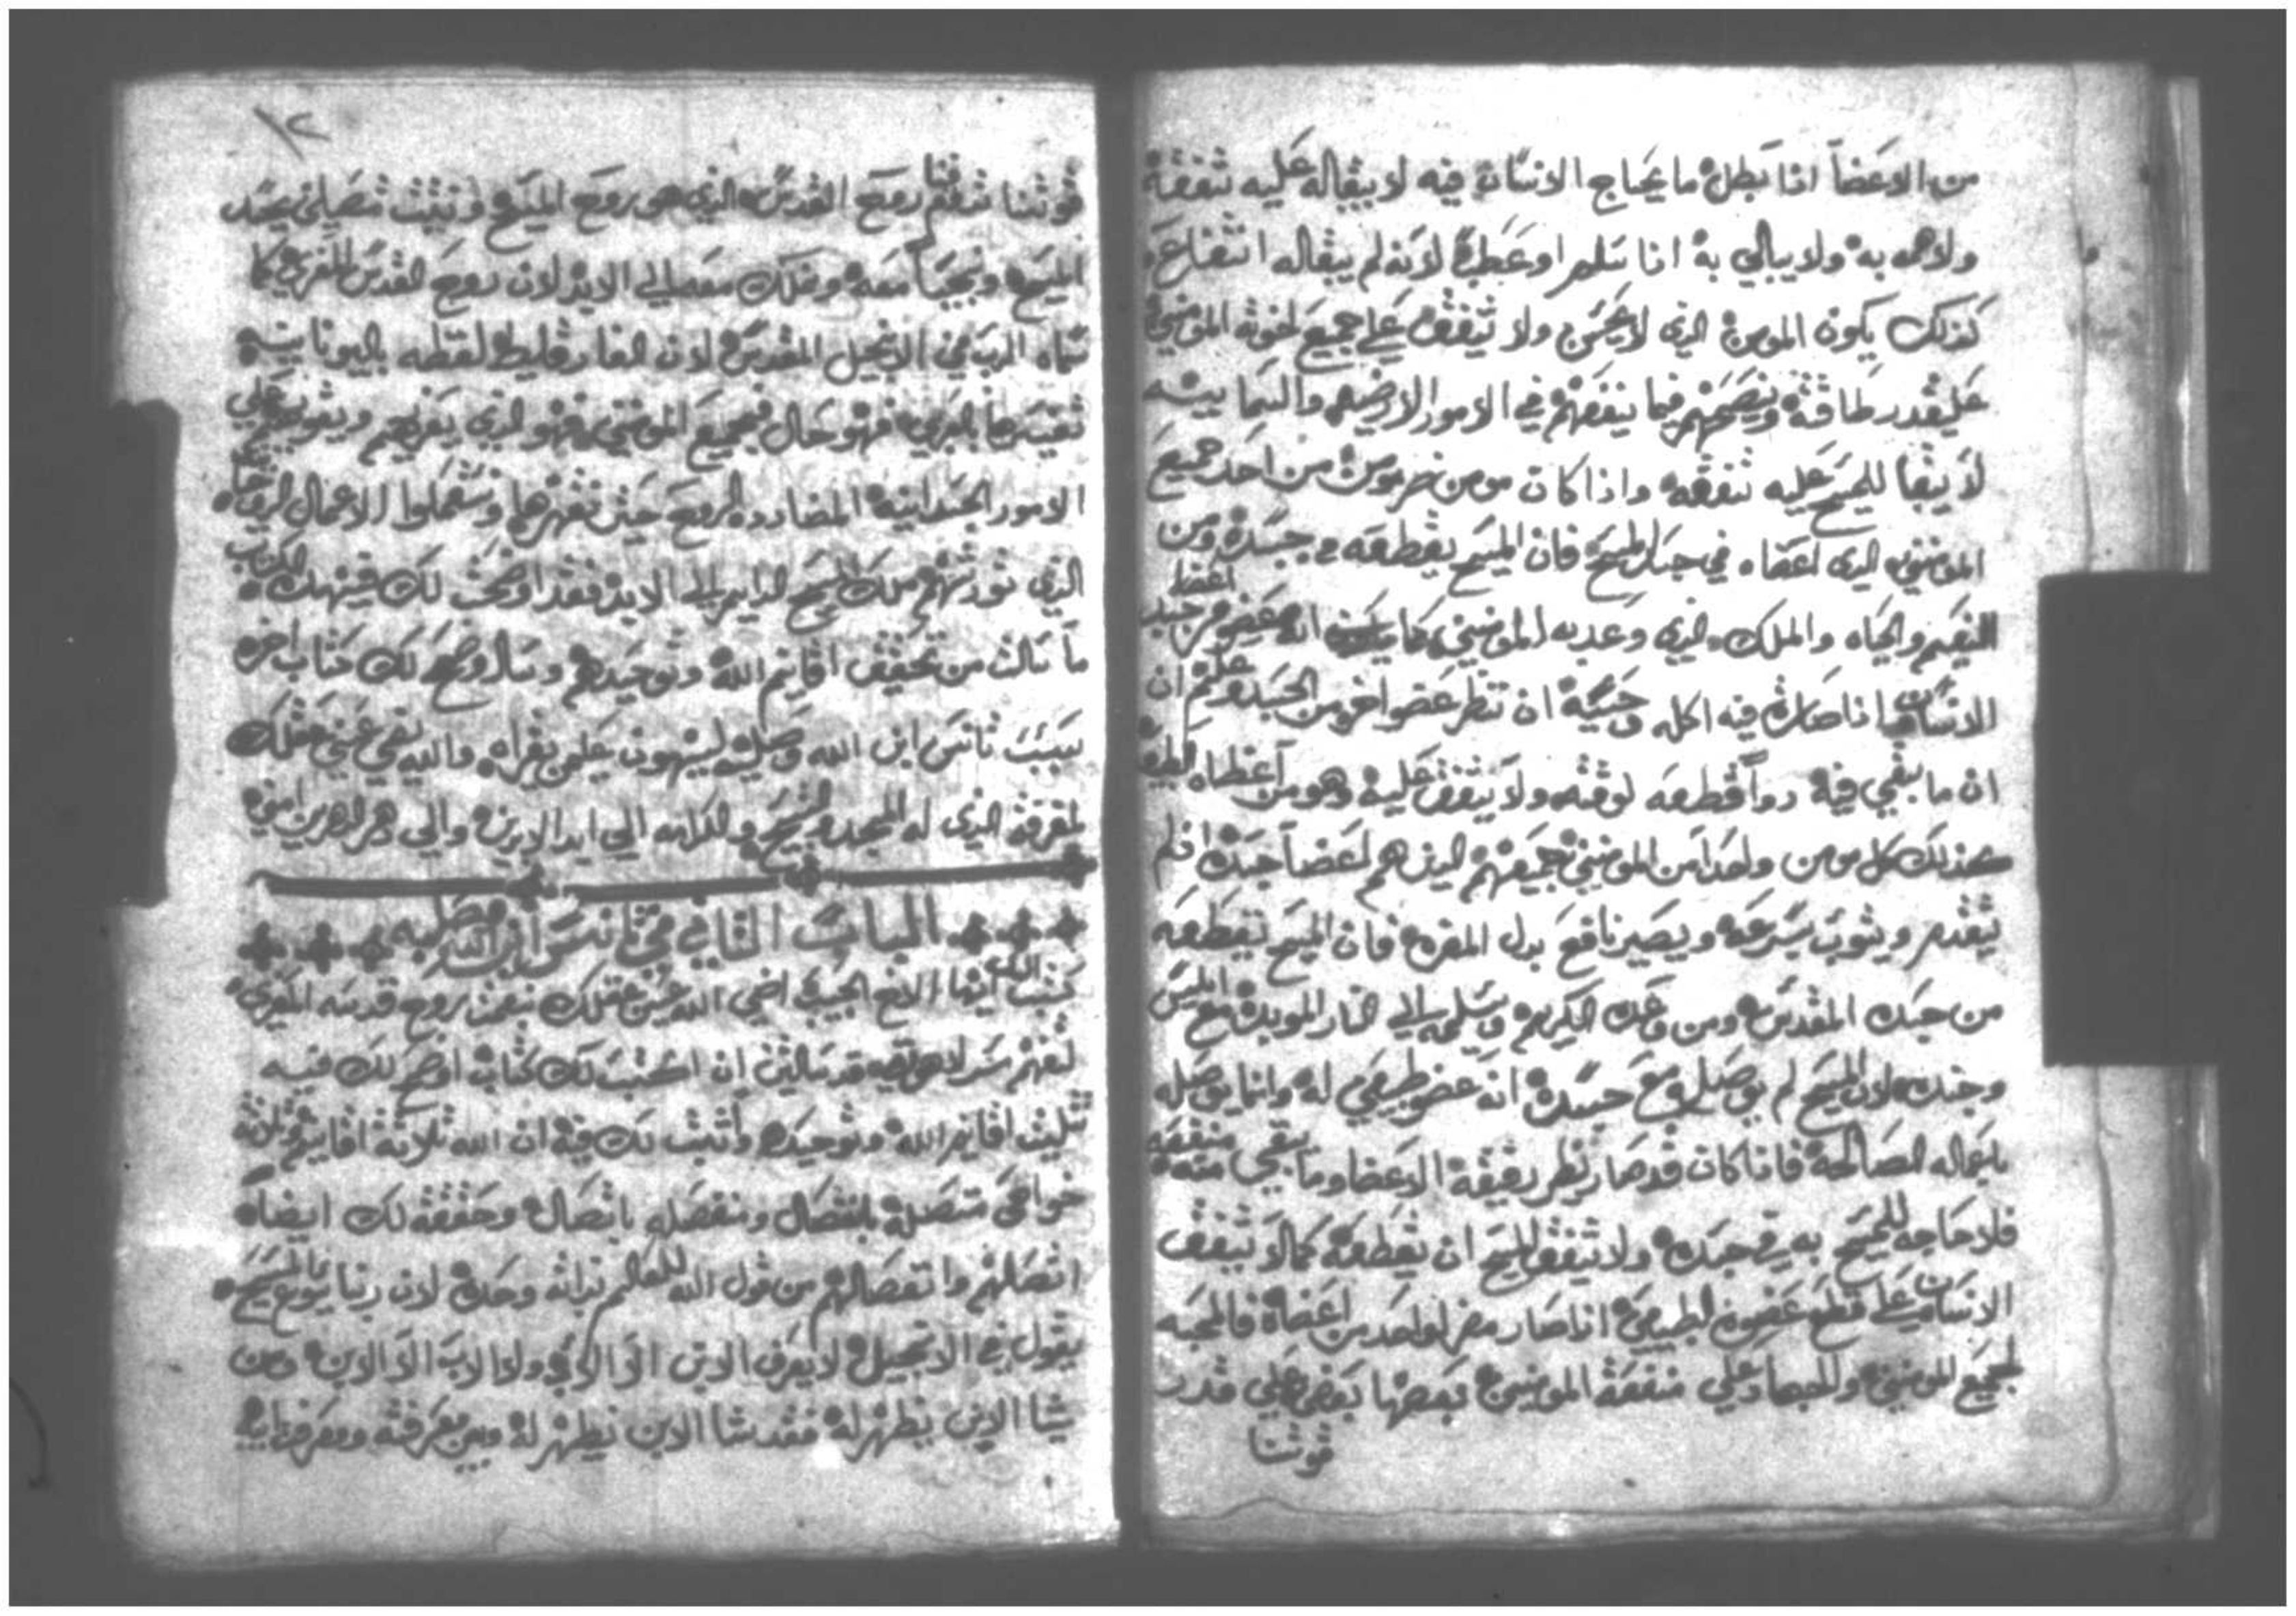 من الاعضا اذا بطل ما يحتاج الانسان فيه لا يبقا له عليه شفقة
ولا همه به ولا يبالي به اذا سلم او عطب لانه لم يبقا له انتفاع
كذلك يكون المومن الذى لا يحسن ولا يشفق على جميع اخوته المومنين
على قدر طاقته وينصحهم فيما ينفعهم في الامور الارضيه والسمايیه
لا يبقا للمسيح عليه شفقه واذا كان مومن من احد جميع
المومنين الذى اعضاه في جسد المسيح فان المسيح يقطعه من جسده ومن
النعيم والحياه والملك الذي وعد به المومنين كما ان عضو من اعضا جسد
الانسان اذا صارة فيه اكله وخشية ان تنظر عضو اخر من الجسد علم ان
ان ما بقي فيه دوا قطعه لوقته ولا يشفق عليه وهو من اعطاه
كذلك كل مومن واحدا من المومنين جميعهم الذين هم اعضا جسده اذا لم
يتقدم ويتوب بسرعه ويصير نافع بدل المضره فان المسيح يقطعه
من جسده المقدس ومن مجده الكريم ويسلمه الي النار الموبده مع ابليس
وجنده لان المسيح لم يوصله مع جسده انه عضو طبيعي له وانما يوصله
باعماله الصالحة فاذا كان قد صار يضر بقية الاعضا وما بقي منه منفعه
فلا حاجه للمسيح به في جسده ولا يشفق المسيح ان يقطعه كما لا يشفق
الانسان على قطع عضوه الطبيعي اذا صار مضر لواحد من اعضاه فالمحبه
لجميع المومنين والجهاد على منفعة المومنين بعضها بعض على قدر
قوتنا
١٢
قوتنا تدفقنا روح القدس الذى هو روح المسيح وتثبت جسد
المسيح ونحيا معه ونملك معه الي الابد لان روح القدس المعزي كما
سماه الرب في الانجيل المقدس لان الفارقليط لفظه باليونانيه
تفسيرها المعزي فهو حال في جميع المومنين فهو الذى يعزيهم ويقويهم على
الامور الجسدانيه المضادده للروح حتى تقهرها ويتعملوا الاعمال الروحانيه
الذي تورثهم ملك المسيح الدايم الي الابد فقد اوضحت لك في هذا الكتاب
ما سالت من تحقيق اقانيم الله وتوحيدهم وساوضح لك كتاب اخر
بسبب تانس ابن الله وصلبه ليهون على من يقراه والله يضي عيني عقلك
لمعرفة الذى له المجد والتسبيح والكرامه الي ابد الابدين والي دهر الداهرين امين
الباب الثاني في تانس ابن الله وصلبه
كتبت اليك ايها الاخ الحبيب اضي الله عيني عقلك بنعمة روح قدسه المعزي
لتفهم سر لاهوته قد سالتني ان اكتب لك كتاب اوضح لك فيه
تثليث اقانيم الله وتوحيده واثبت لك فيه ان الله ثلاثة اقانيم ثلاثة
خواص متصلة بانفصال ومنفصله باتصال وحققته لك ايضا
اتصالهم وانفصالهم من قول الله العالم بذاته وحده لان ربنا يسوع المسيح
يقول في الانجيل لا يعرف الابن الا الاب ولا الاب الا الابن ومن
يشا الابن يظهر له فقد شا الابن يظهر له